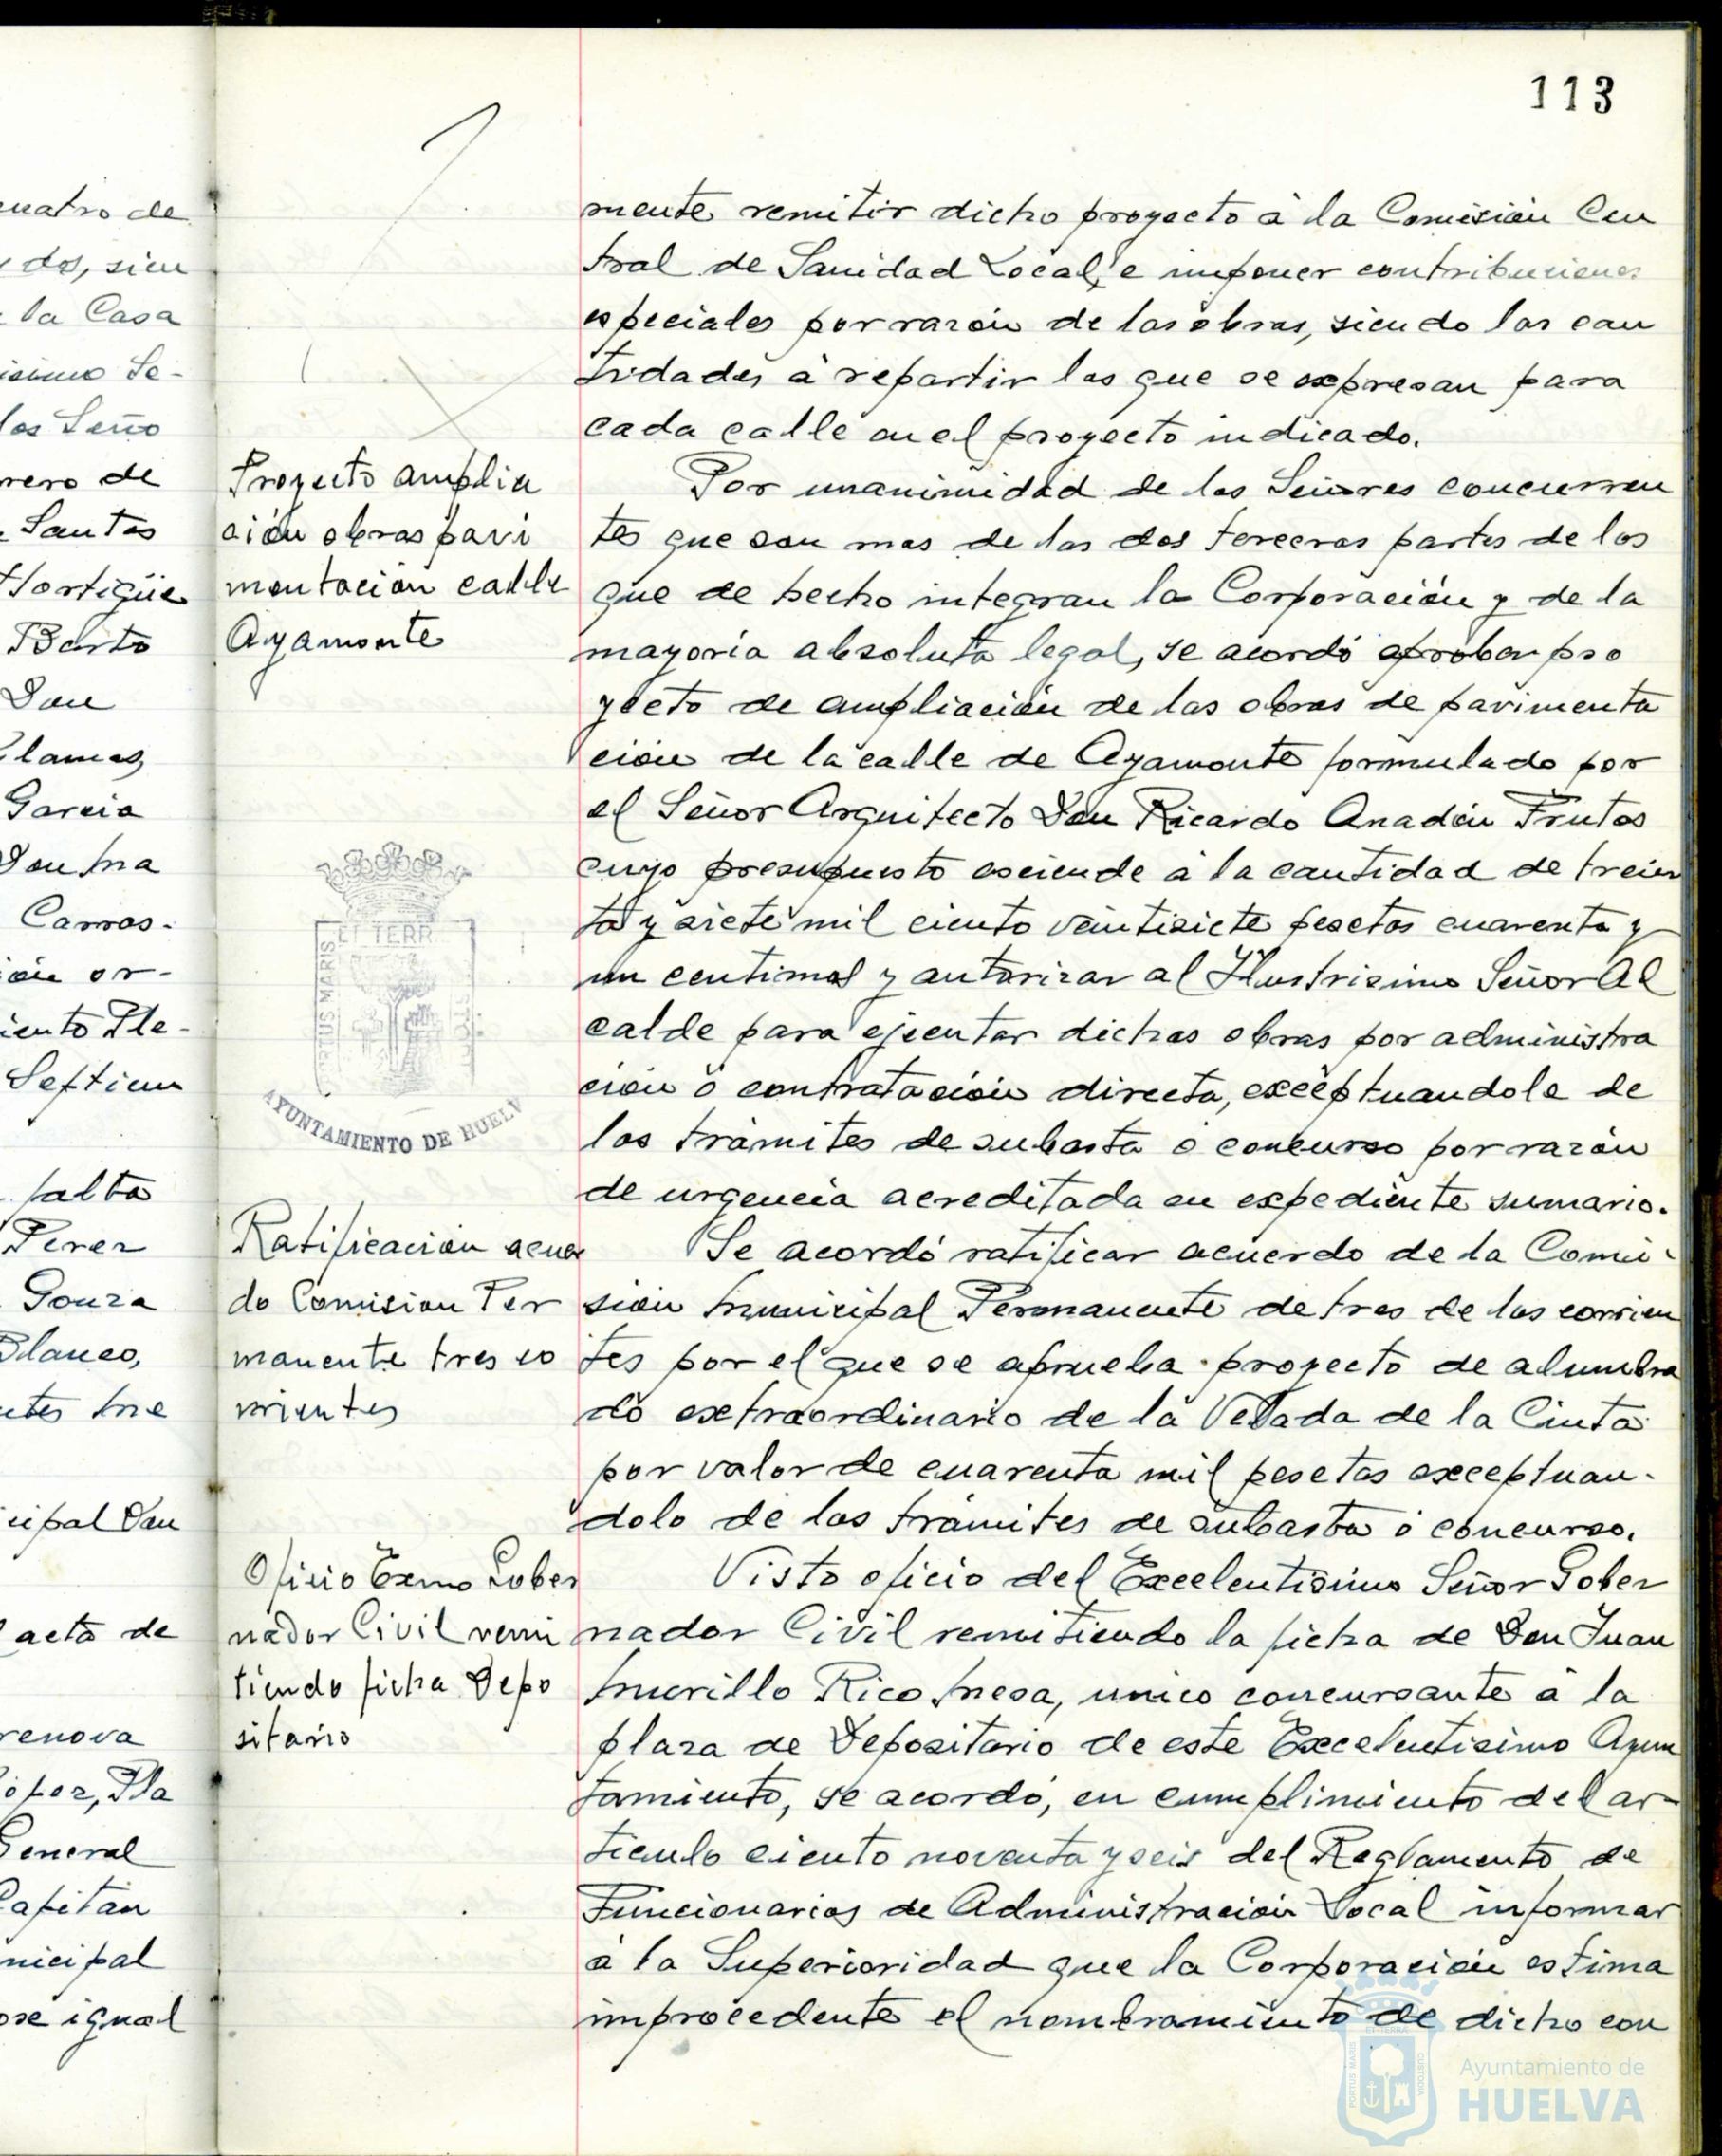 113
cuatro de
dos, sien
la Casa
isimo Se-
los Seño
rero de
Santos
Hortigüe
Barto
Don
Llamas,
Garcia
Don Ma
Carras-
ión or-
iento Ple-
Septiem
falta
Perez
Gonza
Blanco,
ntes me
icipal Don
acta de
renova
ópez, Pla
General
Capitán
nicipal
ose igual
Proyecto amplia
ción obras pavi
mentación calle
Ayamonte
ET TERR
PORTUS MARIS
AYUNTAMIENTO DE HUELV
Ratificación acuer
do Comision Per
manente tres co
rrientes
Oficio Exmo Gober
nador Civil remi
tiendo ficha Depo
sitario
mente remitir dicho proyecto á la Comisión Cen
tral de Sanidad Local, e imponer contribuciones
especiales por razón de las obras, siendo las can
tidades á repartir las que se expresan para
cada calle en el proyecto indicado.
Por unanimidad de los Señores concurren
tes que son mas de las dos terceras partes de los
que de hecho integran la Corporación y de la
mayoría absoluta legal, se acordó aprobar pro
yecto de ampliación de las obras de pavimenta
ción de la calle de Ayamonte formulado por
el Señor Arquitecto Don Ricardo Anadón Frutos
cuyo presupuesto asciende á la cantidad de trein
ta y siete mil ciento veintisiete pesetas cuarenta y
un centimos y autorizar al Ilustrisimo Señor Al
calde para ejecutar dichas obras por administra
ción ó contratación directa, exceptuandola de
los trámites de subasta ó concurso por razón
de urgencia acreditada en expediente sumario.
Se acordó ratificar acuerdo de la Comi-
sión Municipal Permanente de tres de los corrien
tes por el que se aprueba proyecto de alumbra
do extraordinario de la Velada de la Cinta
por valor de cuarenta mil pesetas exceptuan-
dolo de los trámites de subasta ó concurso.
Visto oficio del Excelentisimo Señor Gober
nador Civil remitiendo la ficha de Don Juan
Murillo Rico Mesa, unico concursante á la
plaza de Depositario de este Excelentisimo Ayun
tamiento, se acordó, en cumplimiento del ar-
ticulo ciento noventa y seis del Reglamento de
Funcionarios de Administración Local informar
á la Superioridad que la Corporación estima
improcedente el nombramiento de dicho con
Ayuntamiento de
HUELVA